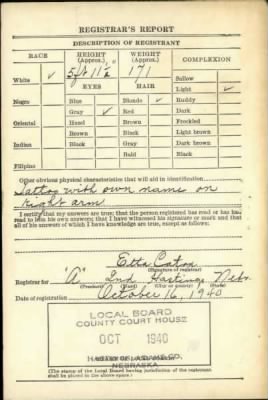 REGISTRAR'S REPORT
DESCRIPTION OF REGISTRANT
RACE HEIGHT (Approx.) WEIGHT (Approx.) COMPLEXION
White ✓ 5 ft 11½" 171 Sallow
EYES HAIR Light ✓
Negro Blue Blonde ✓ Ruddy
Gray ✓ Red Dark
Oriental Hazel Brown Freckled
Brown Black Light brown
Indian Black Gray Dark brown
Bald Black
Filipino
Other obvious physical characteristics that will aid in identification
Tattoo with own name on
right arm
I certify that my answers are true; that the person registered has read or has had
read to him his own answers; that I have witnessed his signature or mark and that
all of his answers of which I have knowledge are true, except as follows:
Etta Caton
(Signature of registrar)
Registrar for "A" 2nd Hastings Nebr
(Precinct) (Ward) (City or county) (State)
Date of registration October 16, 1940
LOCAL BOARD
COUNTY COURT HOUSE
OCT 1940
NEBRASKA
(The stamp of the Local Board having jurisdiction of the registrant
shall be placed in the above space.)